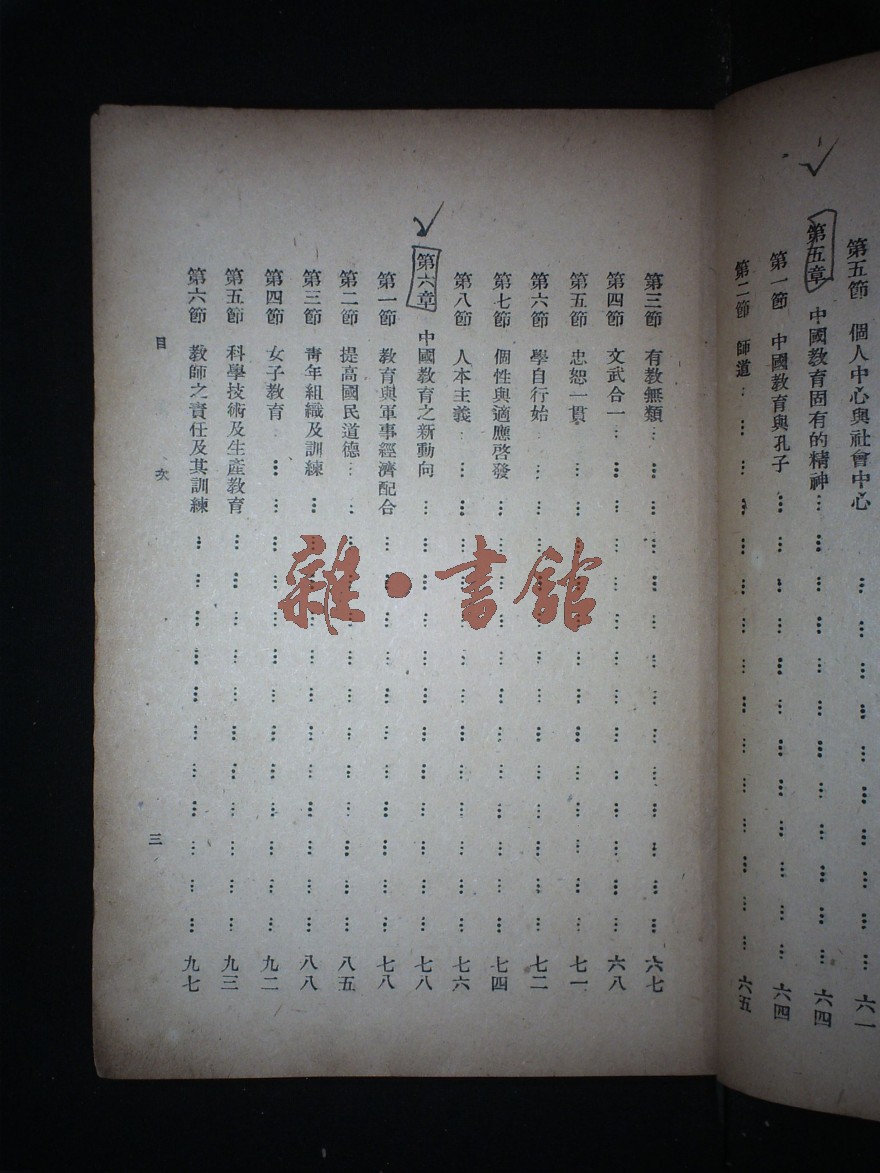 第五節　個人中心與社會中心………六一
第五章　中國教育固有的精神………六四
第一節　中國教育與孔子………六四
第二節　師道………六五
第三節　有教無類………六七
第四節　文武合一………六八
第五節　忠恕一貫………七一
第六節　學自行始………七二
第七節　個性與適應啓發………七四
第八節　人本主義………七六
第六章　中國教育之新動向………七八
第一節　教育與軍事經濟配合………七八
第二節　提高國民道德………八五
第三節　青年組織及訓練………八八
第四節　女子教育………九二
第五節　科學技術及生產教育………九三
第六節　教師之責任及其訓練………九七
目次　三
雜·書館